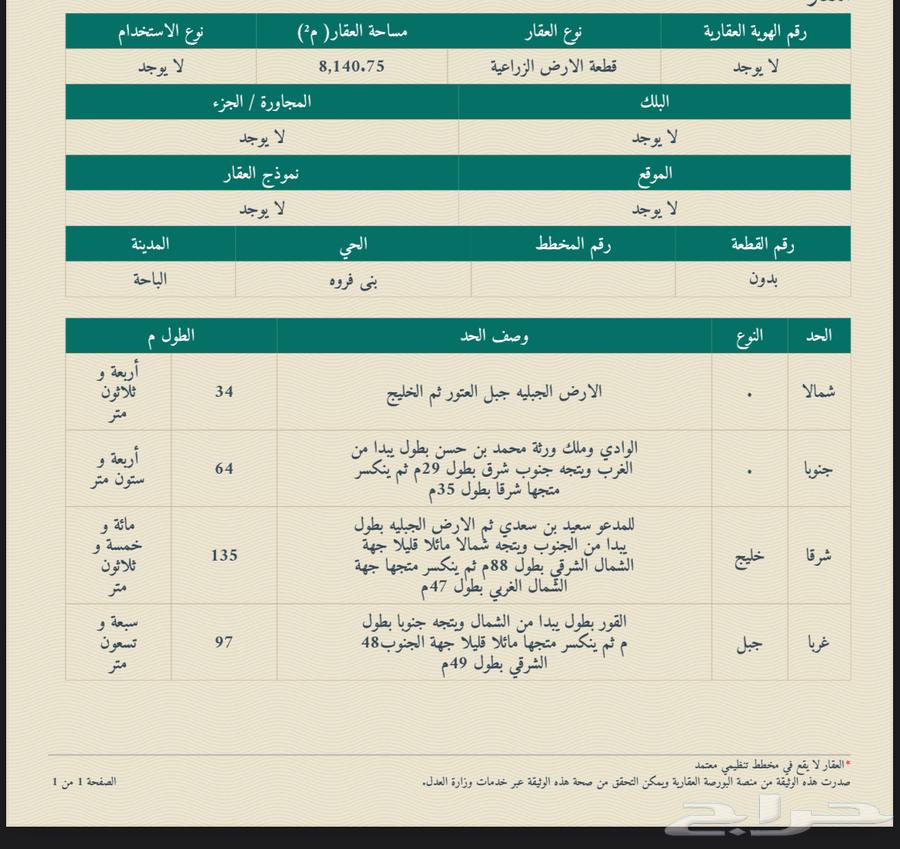 رقم الهوية العقارية نوع العقار مساحة العقار( م²) نوع الاستخدام
لا يوجد قطعة الارض الزراعية 8,140.75 لا يوجد
البلك المجاورة / الجزء
لا يوجد لا يوجد
الموقع نموذج العقار
لا يوجد لا يوجد
رقم القطعة رقم المخطط الحي المدينة
بدون بنى فروه الباحة
الحد النوع وصف الحد الطول م
شمالا . الارض الجبليه جبل العتور ثم الخليج 34 أربعة و
ثلاثون
متر
جنوبا . الوادي وملك ورثة محمد بن حسن بطول يبدا من
الغرب ويتجه جنوب شرق بطول 29م ثم ينكسر
متجها شرقا بطول 35م
64 أربعة و
ستون متر
شرقا خليج للمدعو سعيد بن سعدي ثم الارض الجبليه بطول
يبدا من الجنوب ويتجه شمالا مائلا قليلا جهة
الشمال الشرقي بطول 88م ثم ينكسر متجها جهة
الشمال الغربي بطول 47م
135 مائة و
خمسة و
ثلاثون
متر
غربا جبل القور بطول يبدا من الشمال ويتجه جنوبا بطول
م ثم ينكسر متجها مائلا قليلا جهة الجنوب48
الشرقي بطول 49م
97 سبعة و
تسعون
متر
*العقار لا يقع في مخطط تنظيمي معتمد
صدرت هذه الوثيقة من منصة البورصة العقارية ويمكن التحقق من صحة هذه الوثيقة عبر خدمات وزارة العدل.
الصفحة 1 من 1
حراج